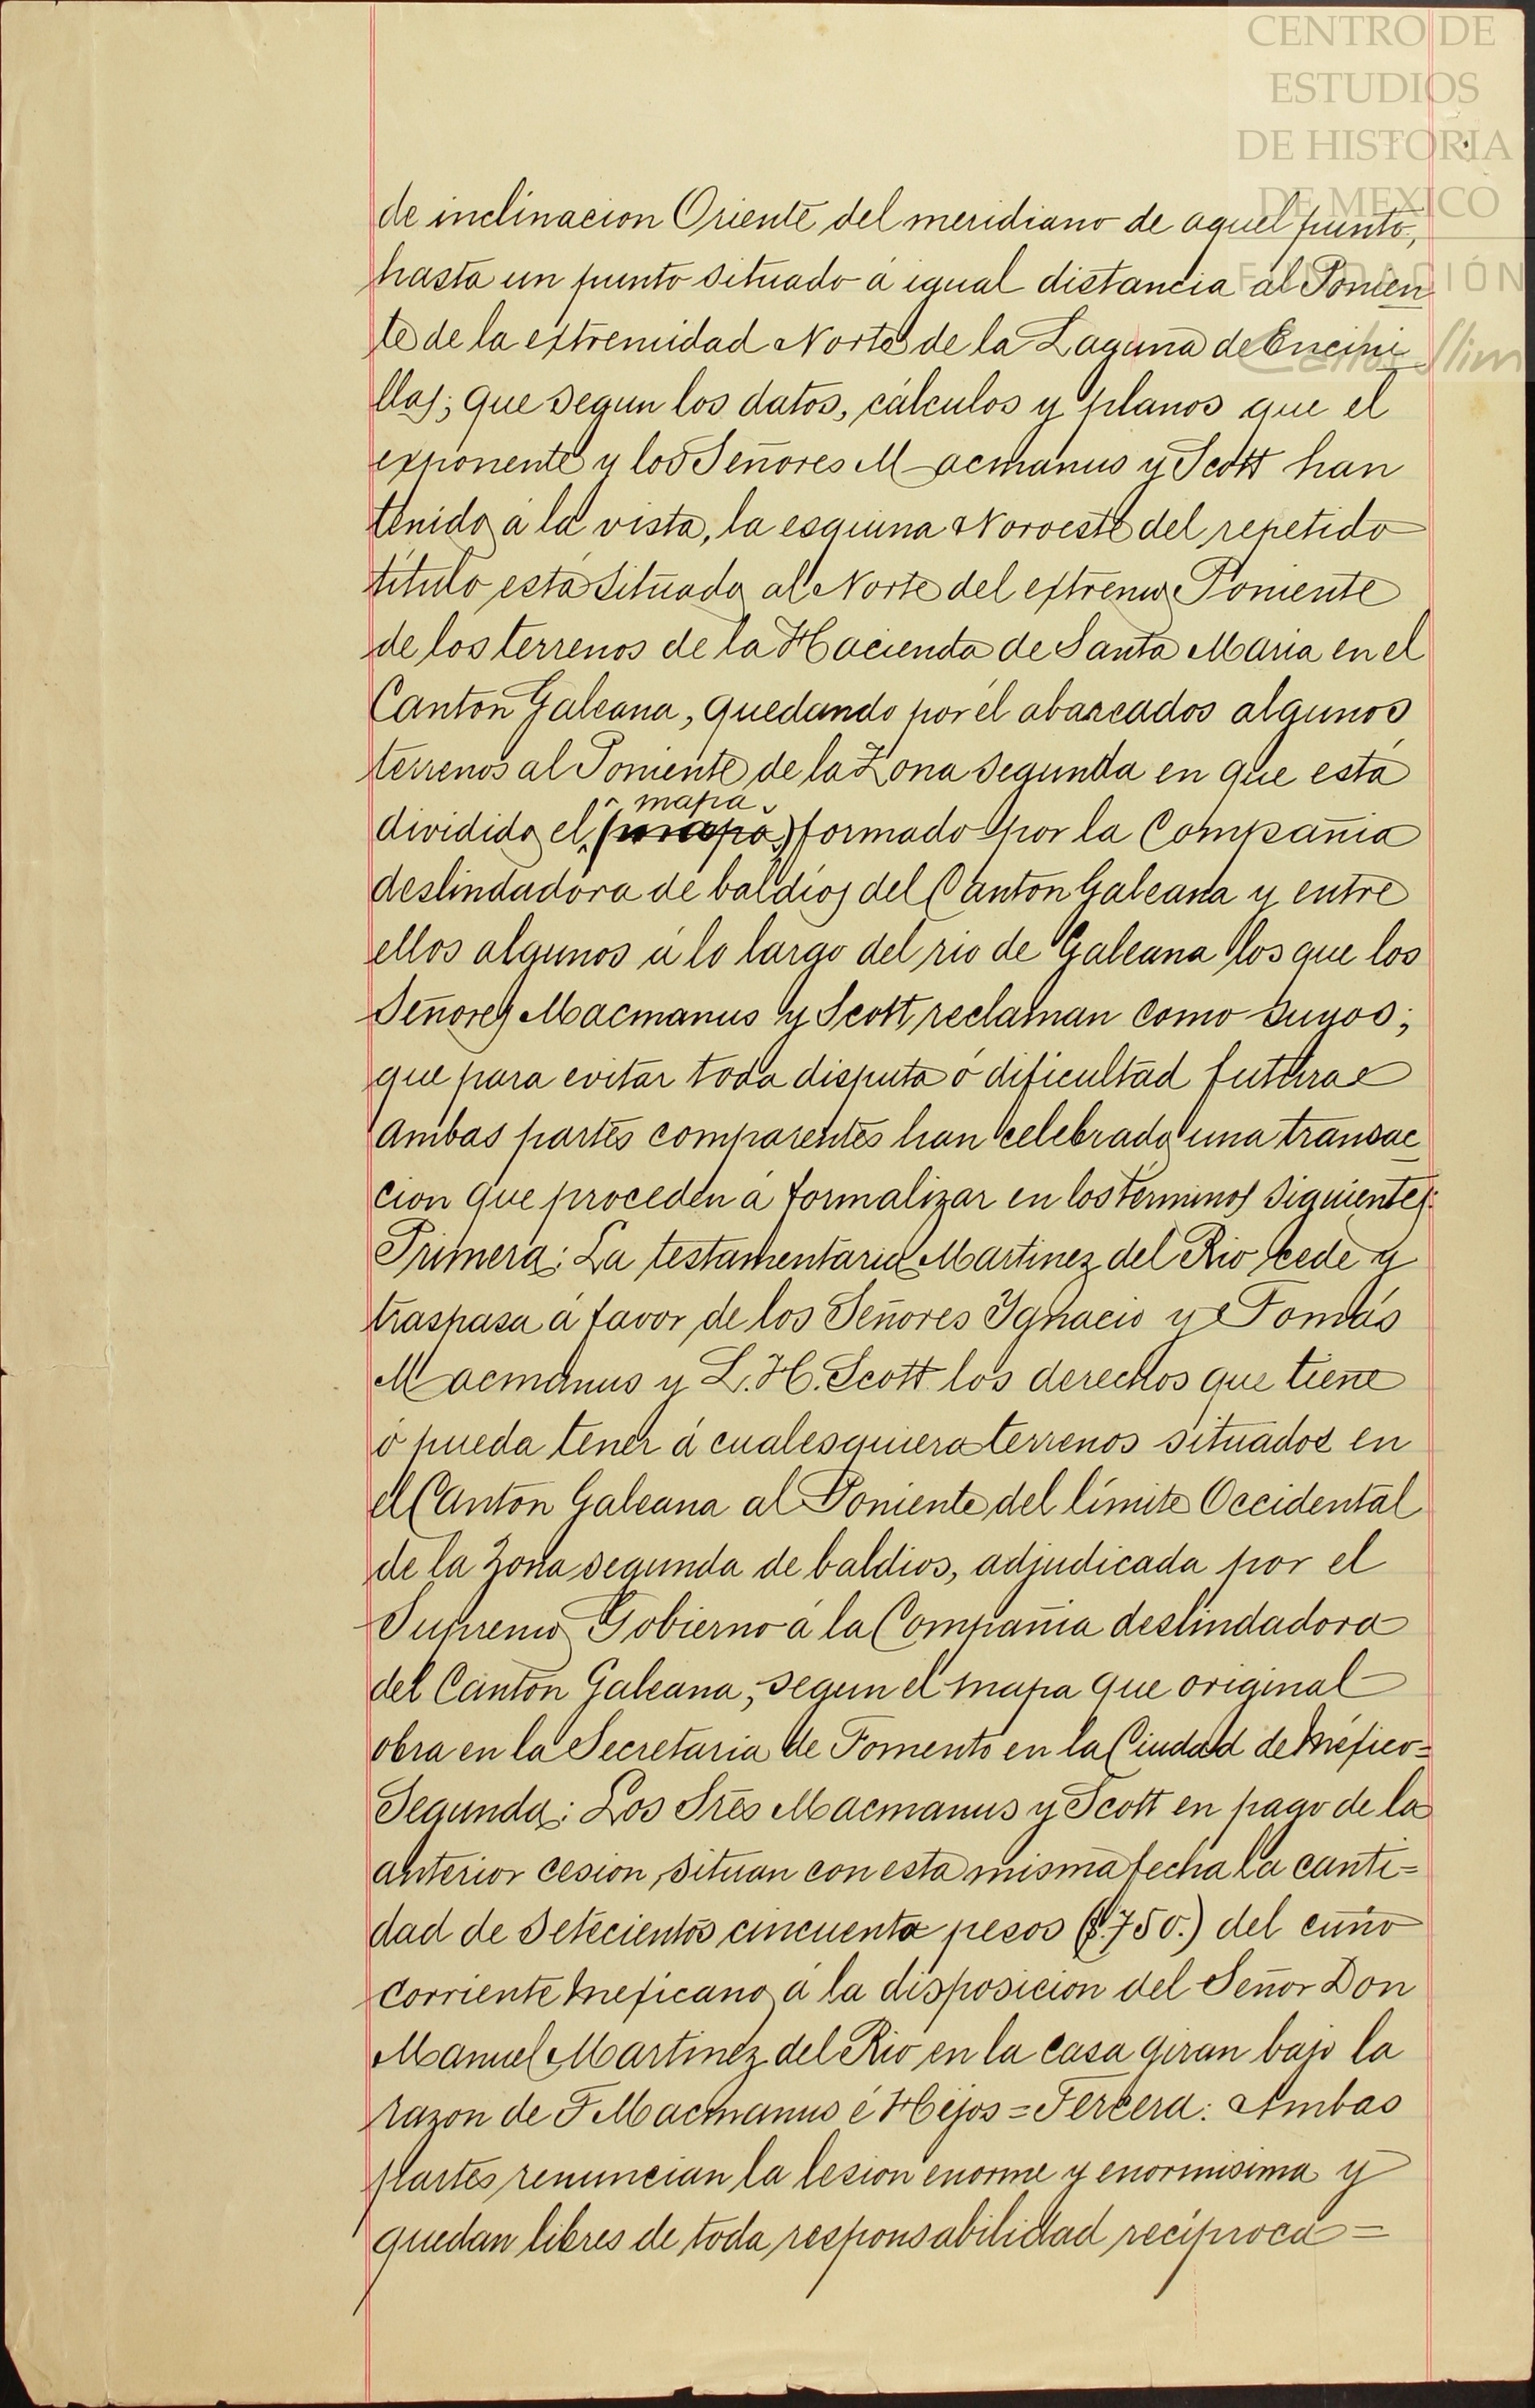 CENTRO DE
ESTUDIOS
DE HISTORIA
DE MEXICO
FUNDACIÓN
Carlos Slim
de inclinacion Oriente del meridiano de aquel punto,
hasta un punto situado á igual distancia al Ponien
te de la extremidad Norte de la Laguna de Encini
llas; que segun los datos, cálculos y planos que el
exponente y los Señores Macmanus y Scott han
tenido á la vista, la esquina Noroeste del repetido
título está situada al Norte del extremo Poniente
de los terrenos de la Hacienda de Santa Maria en el
Canton Galeana, quedando por él abarcados algunos
terrenos al Poniente de la Zona segunda en que está
mapa
dividido el (mapa) formado por la Compañia
deslindadora de baldios del Canton Galeana y entre
ellos algunos á lo largo del rio de Galeana los que los
Señores Macmanus y Scott reclaman como suyos;
que para evitar toda disputa ó dificultad futura
ambas partes comparentes han celebrado una transac
cion que proceden á formalizar en los términos siguientes:
Primera: La testamentaria Martinez del Rio cede y
traspasa á favor de los Señores Ygnacio y Tomás
Macmanus y L. H. Scott los derechos que tiene
ó pueda tener á cualesquiera terrenos situados en
el Canton Galeana al Poniente del límite Occidental
de la Zona segunda de baldios, adjudicada por el
Supremo Gobierno á la Compañia deslindadora
del Canton Galeana, segun el mapa que original
obra en la Secretaria de Fomento en la Ciudad de México=
Segunda: Los Sres Macmanus y Scott en pago de la
anterior cesion, situan con esta misma fecha la canti=
dad de setecientos cincuenta pesos ($.750.) del cuño
corriente mexicano á la disposicion del Señor Don
Manuel Martinez del Rio en la casa giran bajo la
razon de F Macmanus é Hijos = Tercera: Ambas
partes renuncian la lesion enorme y enormisima y
quedan libres de toda responsabilidad recíproca=